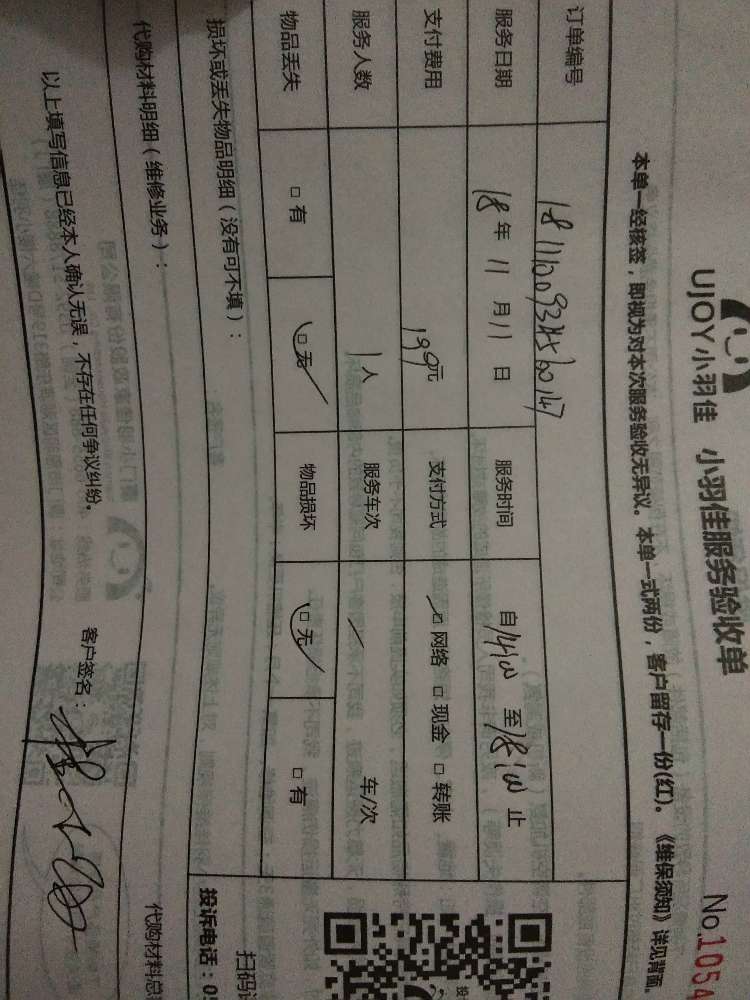 UJOY小羽佳 小羽佳服务验收单
No.1054
本单一经核签，即视为对本次服务验收无异议。本单一式两份，客户留存一份(红)。《维保须知》详见背面
订单编号
服务日期 18年11月11日 服务时间 自14:00至18:00止
支付费用 199元 支付方式 □网络 □现金 □转账
服务人数 1人 服务车次 / 车/次
物品丢失 □有 □无 物品损坏 □无 □有
损坏或丢失物品明细（没有可不填）：
扫码
投诉电话：05
代购材料明细（维修业务）：
代购材料总
以上填写信息已经本人确认无误，不存在任何争议纠纷。 客户签名：